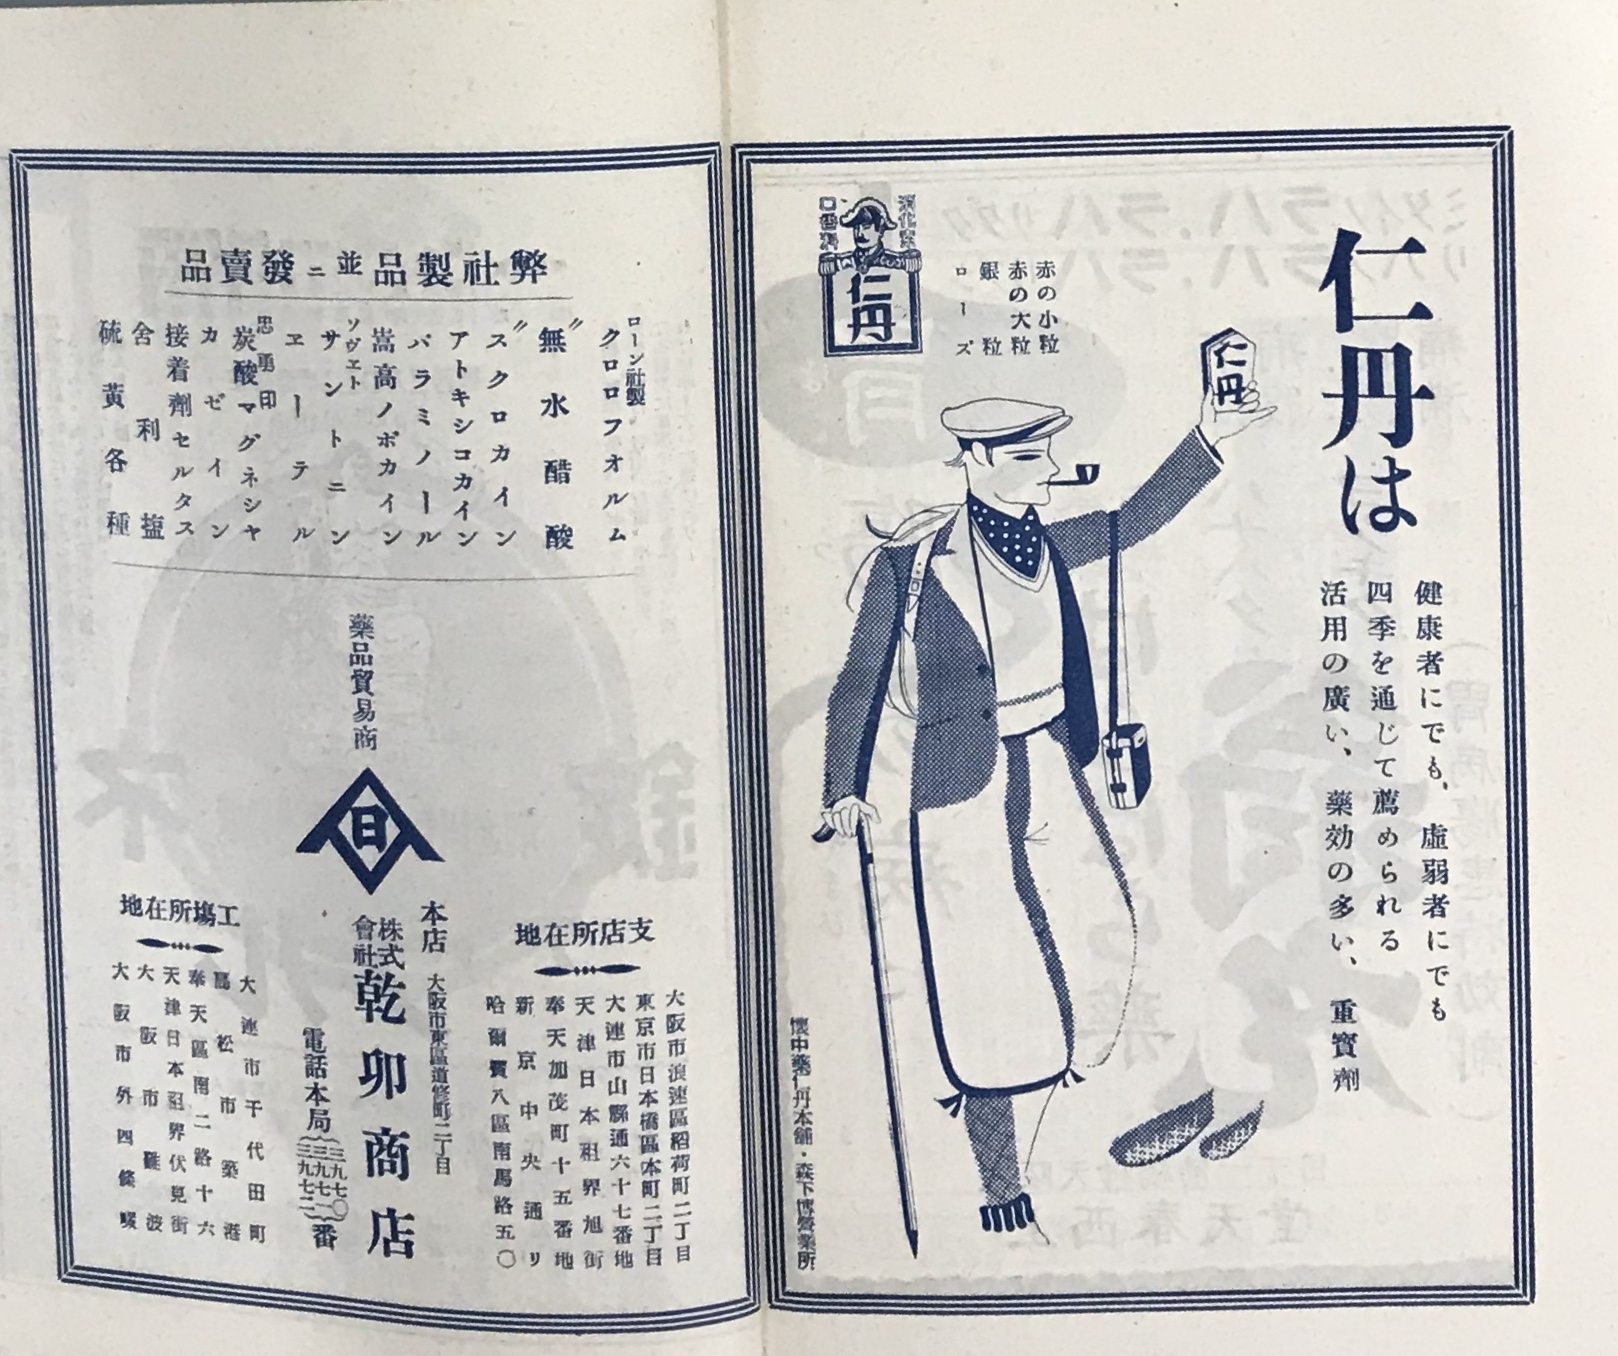 仁丹は
健康者にでも、虛弱者にでも
四季を通じて薦められる
活用の廣い、藥効の多い、重寶劑
仁丹
赤の小粒
赤の大粒
銀粒
ローズ
消化
口
仁丹
懷中藥仁丹本舗・森下博營業所
弊社製品並ニ發賣品
ローン社製
クロロフオルム
〃無水醋酸
〃スクロカイン
アトキシコカイン
パラミノール
嵩高ノボカイン
ソヴェト
サントニン
ヱーテル
忠勇印
炭酸マグネシヤ
カゼイン
接着劑セルタス
舍利鹽
硫黃各種
藥品貿易商
日
支店所在地
大阪市浪速區稻荷町二丁目
東京市日本橋區本町二丁目
大連市山縣通六十七番地
天津日本租界旭街
奉天加茂町十五番地
新京中央通リ
哈爾賓八區南馬路五〇
本店 大阪市東區道修町二丁目
株式會社乾卯商店
電話本局
三九七〇
三九七一
三九七二
番
工場所在地
大連市千代田町
高松市築港
奉天區南二路十六
天津日本租界伏見街
大阪市難波
大阪市外四條畷